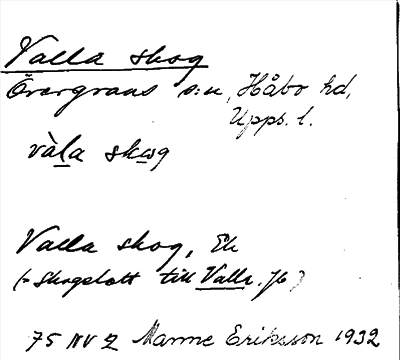 Valla skog
Övergrans s:n, Håbo hd,
Upps. l.
vàla skog
Valla skog, Ek
(= Skogslott till Valla. Jb)
75 NV Manne Eriksson 1932